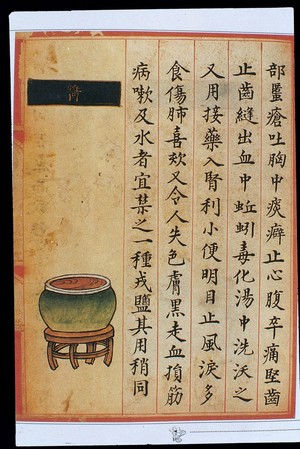 部䘌瘡吐胸中痰癖止心腹卒痛堅齒
止齒縫出血中蚯蚓毒化湯中洗沃之
又用接藥入腎利小便明目止風淚多
食傷肺喜欬又令人失色膚黑走血損筋
病嗽及水者宜禁之一種戎鹽其用稍同